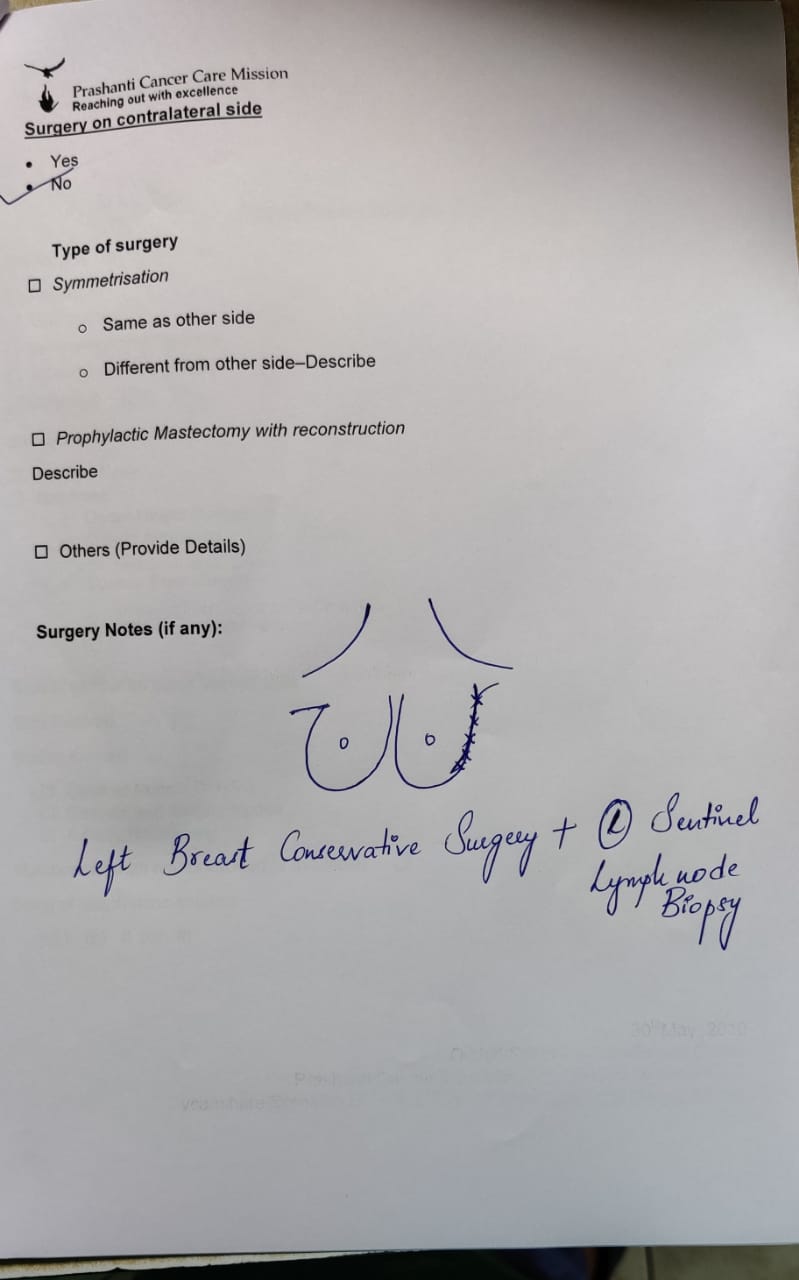 Prashanti Cancer Care Mission
Reaching out with excellence
Surgery on contralateral side
• Yes
• No
Type of surgery
☐ Symmetrisation
o Same as other side
o Different from other side–Describe
☐ Prophylactic Mastectomy with reconstruction
Describe
☐ Others (Provide Details)
Surgery Notes (if any):
Left Breast Conservative Surgery + Ⓛ Sentinel
Lymph node
Biopsy